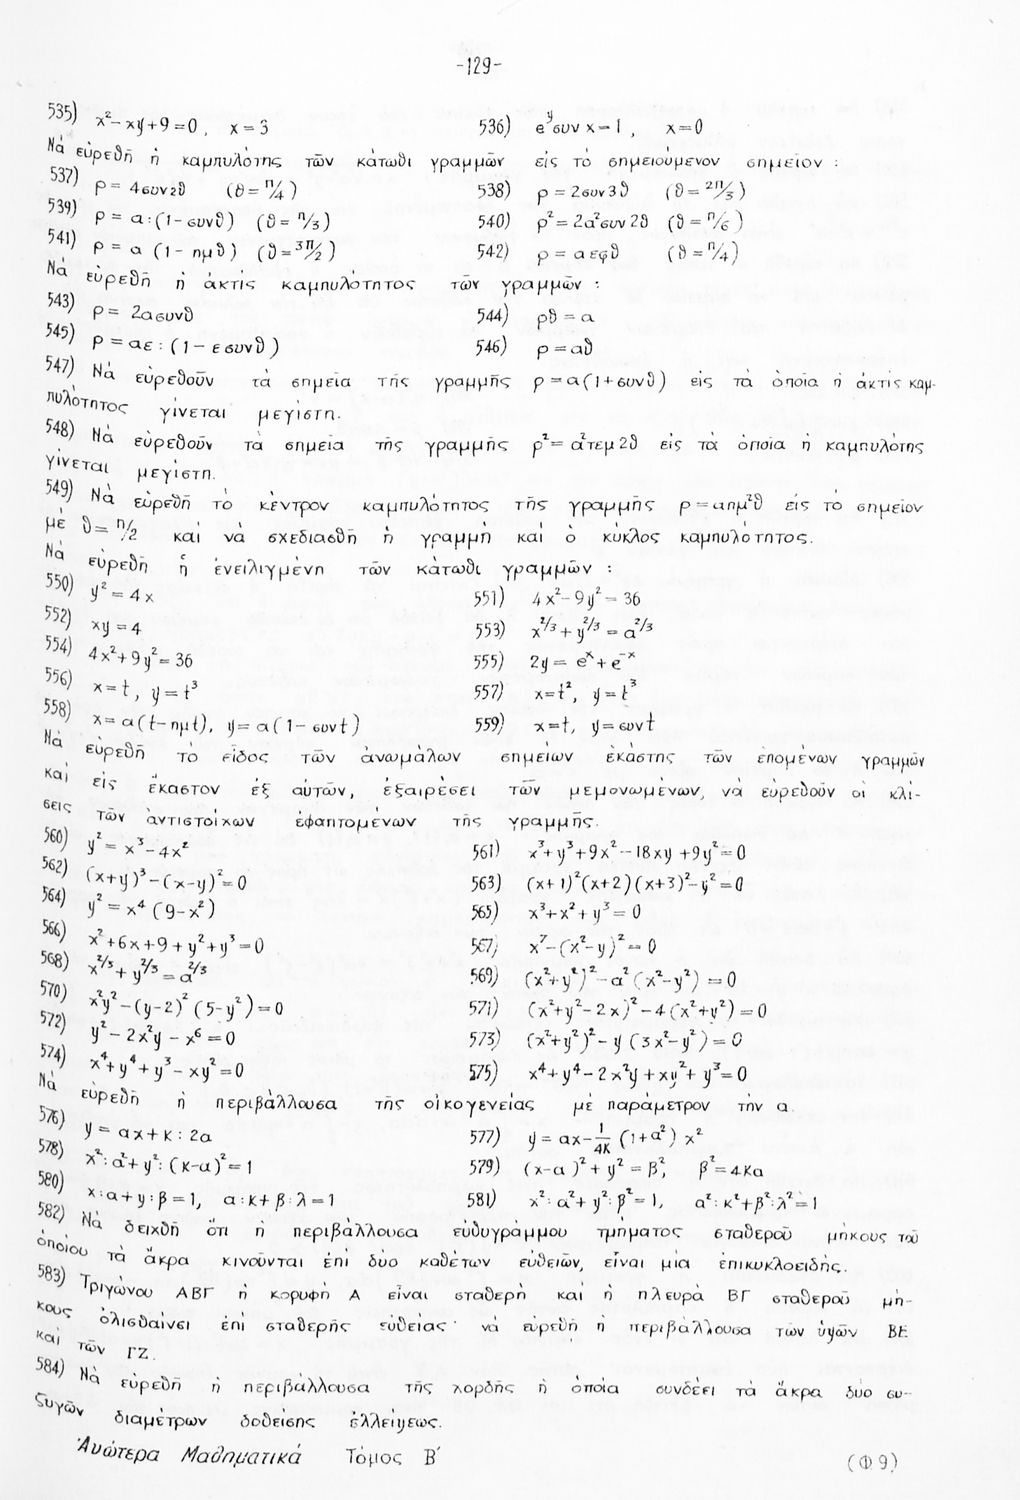 -129-
535) x²-xy+9=0, x=3 536) e^y συν x=1, x=0
Νὰ εὑρεθῆ ἡ καμπυλότης τῶν κάτωθι γραμμῶν εἰς τὸ σημειούμενον σημεῖον :
537) ρ=4συν2θ (θ=π/4) 538) ρ=2συν3θ (θ=2π/3)
539) ρ=α:(1-συνθ) (θ=π/3) 540) ρ²=2α²συν2θ (θ=π/6)
541) ρ=α(1-ημθ) (θ=3π/2) 542) ρ=αεφθ (θ=π/4)
Νὰ εὑρεθῆ ἡ ἀκτὶς καμπυλότητος τῶν γραμμῶν :
543) ρ=2ασυνθ 544) ρθ=α
545) ρ=αε:(1-εσυνθ) 546) ρ=αθ
547) Νὰ εὑρεθοῦν τὰ σημεῖα τῆς γραμμῆς ρ=α(1+συνθ) εἰς τὰ ὁποῖα ἡ ἀκτὶς καμ-
πυλότητος γίνεται μεγίστη.
548) Νὰ εὑρεθοῦν τὰ σημεῖα τῆς γραμμῆς ρ²=α²τεμ2θ εἰς τὰ ὁποῖα ἡ καμπυλότης
γίνεται μεγίστη.
549) Νὰ εὑρεθῆ τὸ κέντρον καμπυλότητος τῆς γραμμῆς ρ=αημ²θ εἰς τὸ σημεῖον
μὲ θ=π/2 καὶ νὰ σχεδιασθῆ ἡ γραμμὴ καὶ ὁ κύκλος καμπυλότητος.
Νὰ εὑρεθῆ ἡ ἐνειλιγμένη τῶν κάτωθι γραμμῶν :
550) y²=4x 551) 4x²-9y²=36
552) xy=4 553) x^2/3+y^2/3=α^2/3
554) 4x²+9y²=36 555) 2y=e^x+e^-x
556) x=t, y=t³ 557) x=t², y=t³
558) x=α(t-ημt), y=α(1-συνt) 559) x=t, y=συνt
Νὰ εὑρεθῆ τὸ εἶδος τῶν ἀνωμάλων σημείων ἑκάστης τῶν ἑπομένων γραμμῶν
καὶ εἰς ἕκαστον ἐξ αὐτῶν, ἐξαιρέσει τῶν μεμονωμένων, νὰ εὑρεθοῦν οἱ κλί-
σεις τῶν ἀντιστοίχων ἐφαπτομένων τῆς γραμμῆς.
560) y²=x³-4x² 561) x³+y³+9x²-18xy+9y²=0
562) (x+y)³-(x-y)²=0 563) (x+1)²(x+2)(x+3)²-y²=0
564) y²=x⁴(9-x²) 565) x³+x²+y³=0
566) x²+6x+9+y²+y³=0 567) x⁷-(x²-y)²=0
568) x^2/3+y^2/3=α^2/3 569) (x²+y²)²-α²(x²-y²)=0
570) x²y²-(y-2)²(5-y²)=0 571) (x²+y²-2x)²-4(x²+y²)=0
572) y²-2x²y-x⁶=0 573) (x²+y²)²-y(3x²-y²)=0
574) x⁴+y⁴+y³-xy²=0 575) x⁴+y⁴-2x²y+xy²+y³=0
Νὰ εὑρεθῆ ἡ περιβάλλουσα τῆς οἰκογενείας μὲ παράμετρον τὴν α.
576) y=αx+κ:2α 577) y=αx-1/4κ(1+α²)x²
578) x²:α²+y²:(κ-α)²=1 579) (x-α)²+y²=β², β²=4κα
580) x:α+y:β=1, α:κ+β:λ=1 581) x²:α²+y²:β²=1, α²:κ²+β²:λ²=1
582) Νὰ δειχθῆ ὅτι ἡ περιβάλλουσα εὐθυγράμμου τμήματος σταθεροῦ μήκους τοῦ
ὁποίου τὰ ἄκρα κινοῦνται ἐπὶ δύο καθέτων εὐθειῶν, εἶναι μία ἐπικυκλοειδής.
583) Τριγώνου ΑΒΓ ἡ κορυφὴ Α εἶναι σταθερὴ καὶ ἡ πλευρὰ ΒΓ σταθεροῦ μή-
κους ὀλισθαίνει ἐπὶ σταθερῆς εὐθείας· νὰ εὑρεθῆ ἡ περιβάλλουσα τῶν ὑψῶν ΒΕ
καὶ τῶν ΓΖ.
584) Νὰ εὑρεθῆ ἡ περιβάλλουσα τῆς χορδῆς ἡ ὁποία συνδέει τὰ ἄκρα δύο συ-
ζυγῶν διαμέτρων δοθείσης ἐλλείψεως.
Ἀνώτερα Μαθηματικά Τόμος Β΄ (Φ 9)